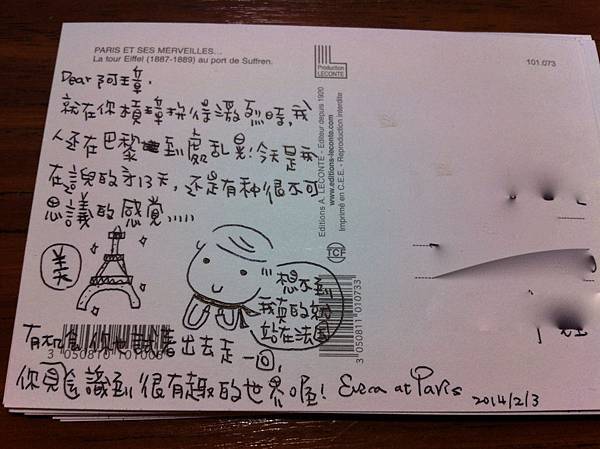 PARIS ET SES MERVEILLES...
La tour Eiffel (1887-1889) au port de Suffren.
Production
LECONTE
101.073
Dear 阿瑋,
就在你槓得激烈時,我
人還在巴黎到處乱晃!今天是我
在這兒的才13天,還是有种很不可
思議的感覚.....
美
想不到
我真的
站在法国
有机会你也試著出去走一回,
你会見識到很有趣的世界喔! Eveca at Paris
2014/2/3
Editions A. LECONTE - Editeur depuis 1920
www.editions-leconte.com
Imprimé en C.E.E. - Reproduction interdite
TCF
3 050811 010733
3 050810 10100